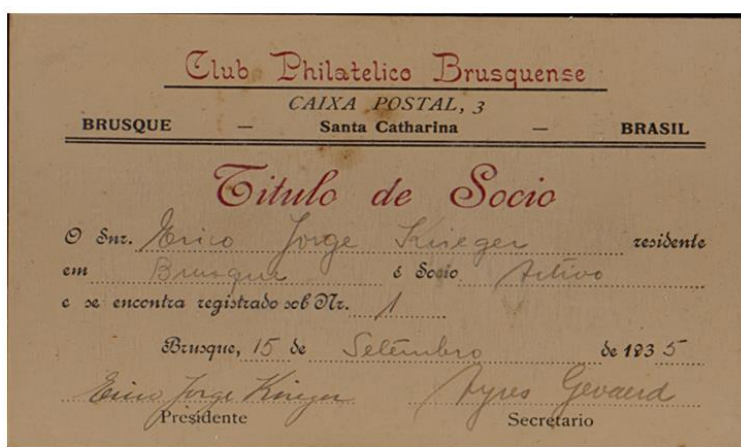 Club Philatelico Brusquense
CAIXA POSTAL, 3
BRUSQUE — Santa Catharina — BRASIL
Titulo de Socio
O Snr. Erico Jorge Krieger residente
em Brusque é Socio Activo
e se encontra registrado sob Nr. 1
Brusque, 15 de Setembro de 1935
Erico Jorge Krieger Ayres Gevaerd
Presidente Secretario